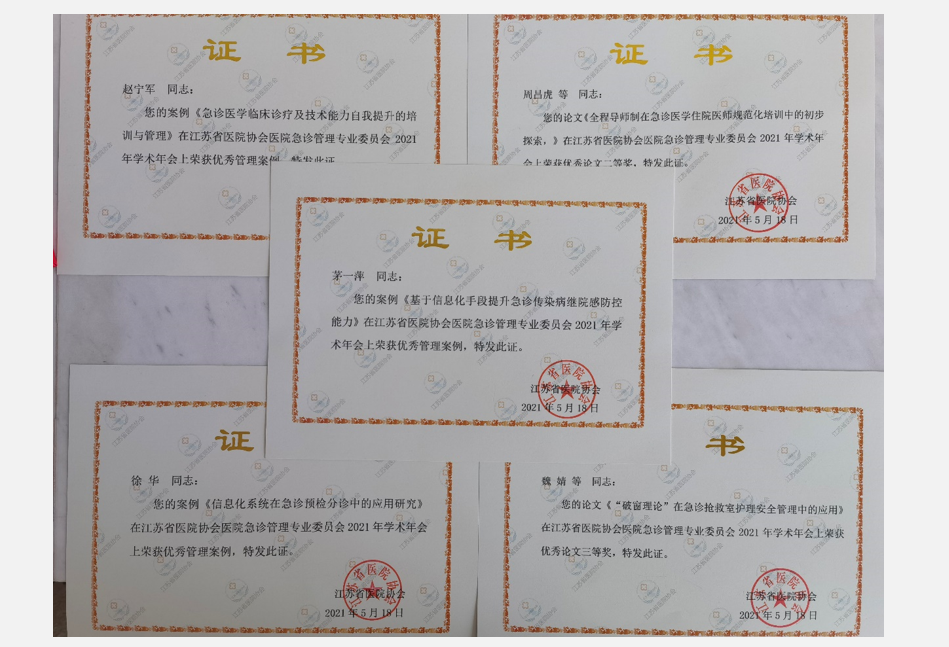 证 书
赵宁军 同志：
您的案例《急诊医学临床诊疗及技术能力自我提升的培
训与管理》在江苏省医院协会医院急诊管理专业委员会 2021
年学术年会上荣获优秀管理案例，特发此证
证 书
周昌虎 等 同志：
您的论文《全程导师制在急诊医学住院医师规范化培训中的初步
探索，》在江苏省医院协会医院急诊管理专业委员会 2021 年学术年
会上荣获优秀论文二等奖，特发此证。
江苏省医院协会
2021 年 5 月 18 日
证 书
茅一萍 同志：
您的案例《基于信息化手段提升急诊传染病继院感防控
能力》在江苏省医院协会医院急诊管理专业委员会 2021 年学
术年会上荣获优秀管理案例，特发此证。
江苏省医院协会
2021 年 5 月 18 日
证
徐 华 同志：
您的案例《信息化系统在急诊预检分诊中的应用研究》
在江苏省医院协会医院急诊管理专业委员会 2021 年学术年会
上荣获优秀管理案例，特发此证。
江苏省医院协会
2021 年 5 月 18 日
书
魏 婧 等 同志：
您的论文《“破窗理论”在急诊抢救室护理安全管理中的应用》
在江苏省医院协会医院急诊管理专业委员会 2021 年学术年会上荣获
优秀论文三等奖，特发此证。
江苏省医院协会
2021 年 5 月 18 日